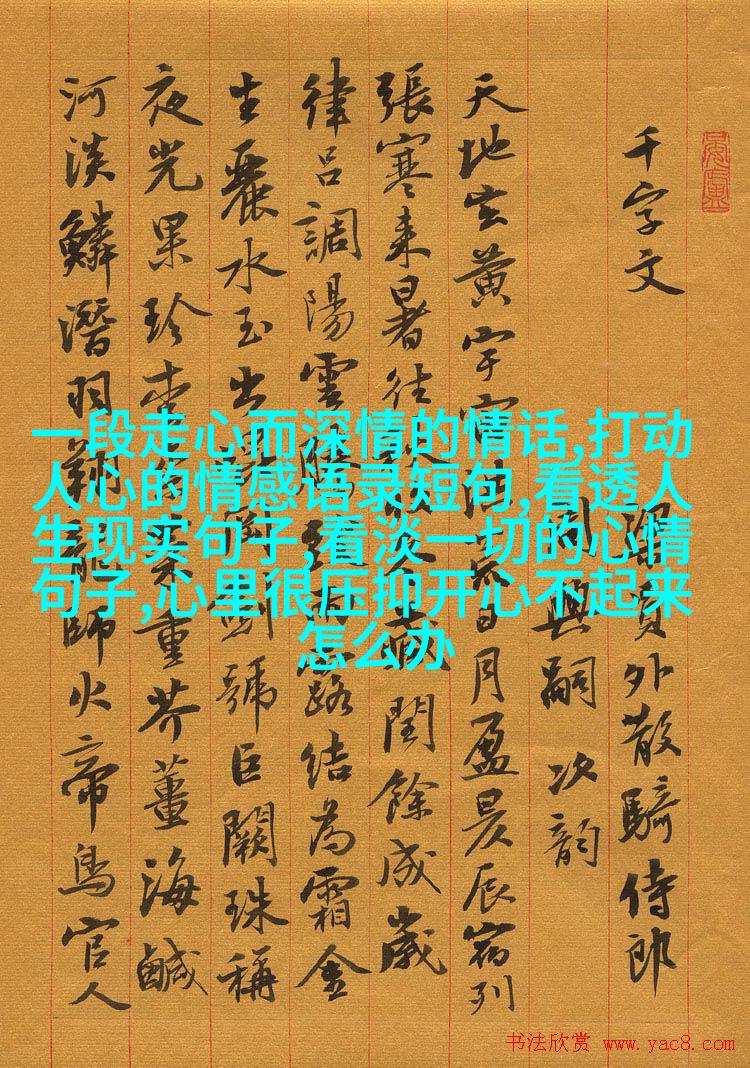 千字文
梁員外散騎侍郎
周興嗣次韻
天地玄黃宇宙洪荒日月盈昃辰宿列
張寒来暑往秋收冬藏閏餘成歲
律呂調陽雲騰致雨露結為霜金
生麗水玉出崑岡劍號巨闕珠稱
夜光果珍李柰菜重芥薑海鹹
河淡鱗潛羽翔龍師火帝鳥官人
一段走心而深情的情话,打动
人心的情感语录短句,看透人
生现实句子,看淡一切的心情
句子,心里很压抑开心不起来
怎么办
书法欣赏 www.yac8.com